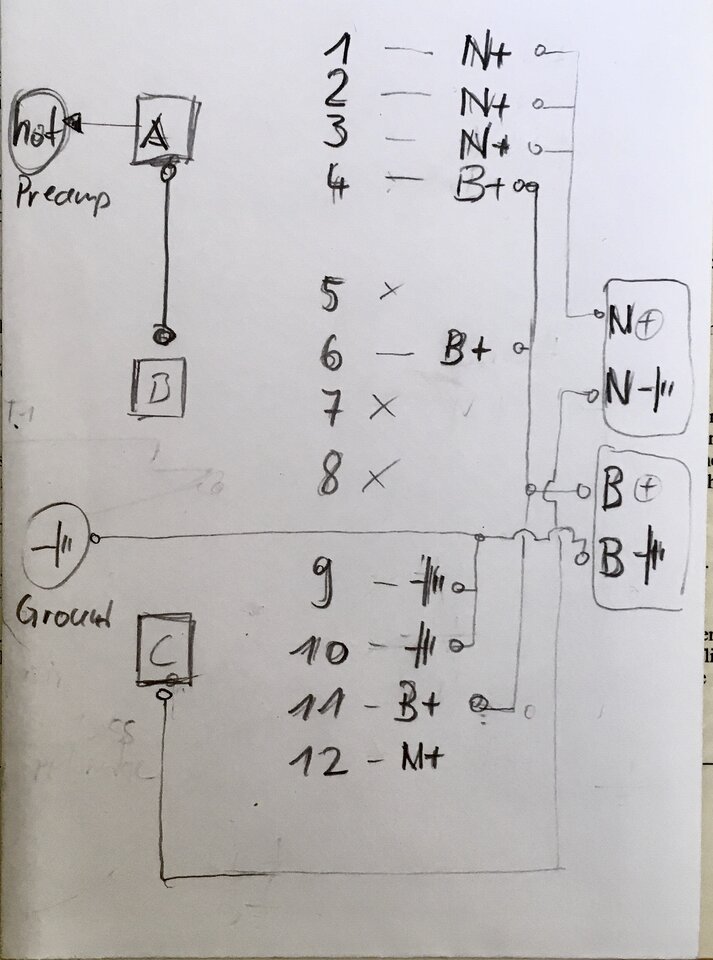 1 — N+
2 — N+
3 — N+
4 — B+
hot
A
Preamp
5 ×
6 — B+
7 ×
8 ×
B
N +
N
B +
B
Ground
C
9 —
10 —
11 - B+
12 - M+